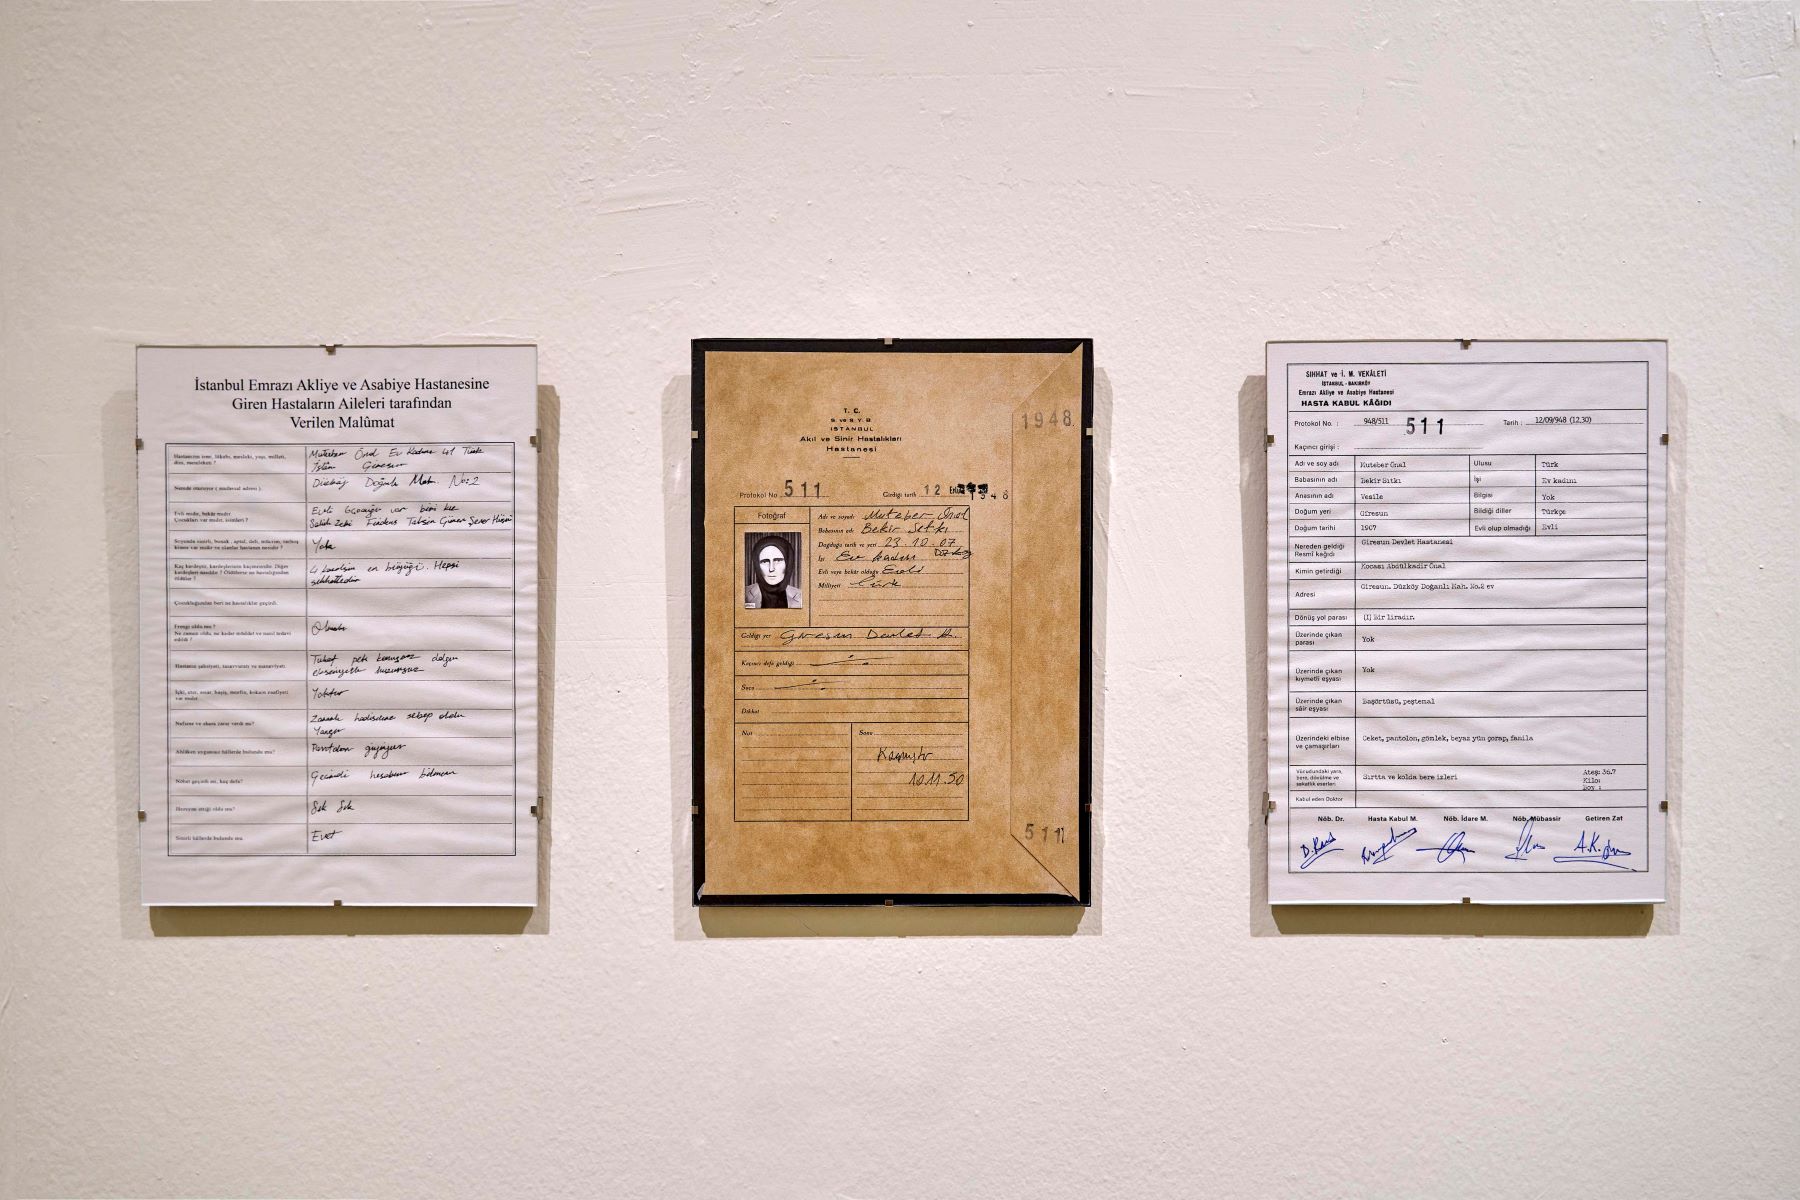 İstanbul Emrazı Akliye ve Asabiye Hastanesine
Giren Hastaların Aileleri tarafından
Verilen Malûmat
Hastanızın ismi, lâkabı, mesleki, yaşı, milleti,
dini, memleketi ?
Muteber Önal Ev Kadını 41 Türk
İslâm Giresun
Nerede oturuyor ( mufassal adresi ).
Düzköy Doğanlı Mah. No:2
Evli midir, bekâr mıdır.
Çocukları var mıdır, isimleri ?
Evli 6 çocuğu var biri kız
Salih Zeki Firdevs Tahsin Güner Şener Hüsnü
Yok
4 kardeşin en büyüğü. Hepsi
sıhhattedir
Çocukluğundan beri ne hastalıklar geçirdi.
Frengi oldu mu ?
Ne zaman oldu, ne kadar müddet ve nasıl tedavi
edildi ?
Olmadı
Hastanın şahsiyeti, tasavvuratı ve maneviyatı.
Tuhaf pek konuşmaz dalgın
ekseriyetle huzursuz
Yoktur
Nefsine ve ahara zarar verdi mi?
Zararlı hadiselere sebep oldu
Yangın
Ahlâken uygunsuz hâllerde bulundu mu?
Pantolon giyiyor
Nöbet geçirdi mi, kaç defa?
Geçirdi hesabını bilmem
Hezeyan ettiği oldu mu?
Sık Sık
Sinirli hâllerde bulundu mu.
Evet
T. C.
S. ve S. Y. B.
İSTANBUL
Akıl ve Sinir Hastalıkları
Hastanesi
1948.
Protokol No 511
Girdiği tarih 12
Fotoğraf
Adı ve soyadı Muteber Önal
Babasının adı Bekir Sıtkı
Doğduğu tarih ve yeri 23.10.07 Düzköy
İşi Ev kadını
Evli veya bekâr olduğu Evli
Milliyeti Türk
Geldiği yer Giresun Devlet H.
Kaçıncı defa geldiği
Suçu
Dikkat
Not
Sonu
Kaçmıştır
10.11.50
511
SIHHAT ve İ. M. VEKÂLETİ
İSTANBUL - BAKIRKÖY
Emrazı Akliye ve Asabiye Hastanesi
HASTA KABUL KÂĞIDI
Protokol No. : 948/511 511 Tarih : 12/09/948 (12.30)
Kaçıncı girişi :
Adı ve soy adı Muteber Önal Ulusu Türk
Babasının adı Bekir Sıtkı İşi Ev kadını
Anasının adı Vesile Bilgisi Yok
Doğum yeri Giresun Bildiği diller Türkçe
Doğum tarihi 1907 Evli olup olmadığı Evli
Nereden geldiği
Resmî kağıdı
Giresun Devlet Hastanesi
Kimin getirdiği Kocası Abdülkadir Önal
Adresi Giresun. Düzköy Doğanlı Mah. No.2 ev
Dönüş yol parası (1) Bir liradır.
Üzerinde çıkan
parası
Yok
Üzerinde çıkan
kıymetli eşyası
Yok
Üzerinde çıkan
sâir eşyası
Başörtüsü, peştemal
Üzerindeki elbise
ve çamaşırları
Ceket, pantolon, gömlek, beyaz yün çorap, fanila
Vücudundaki yara,
bere, dökülme ve
sakatlık eserleri
Sırtta ve kolda bere izleri
Ateş: 36.7
Kilo:
Boy :
Kabul eden Doktor
Nöb. Dr. Hasta Kabul M. Nöb. İdare M. Nöb. Mübassir Getiren Zat